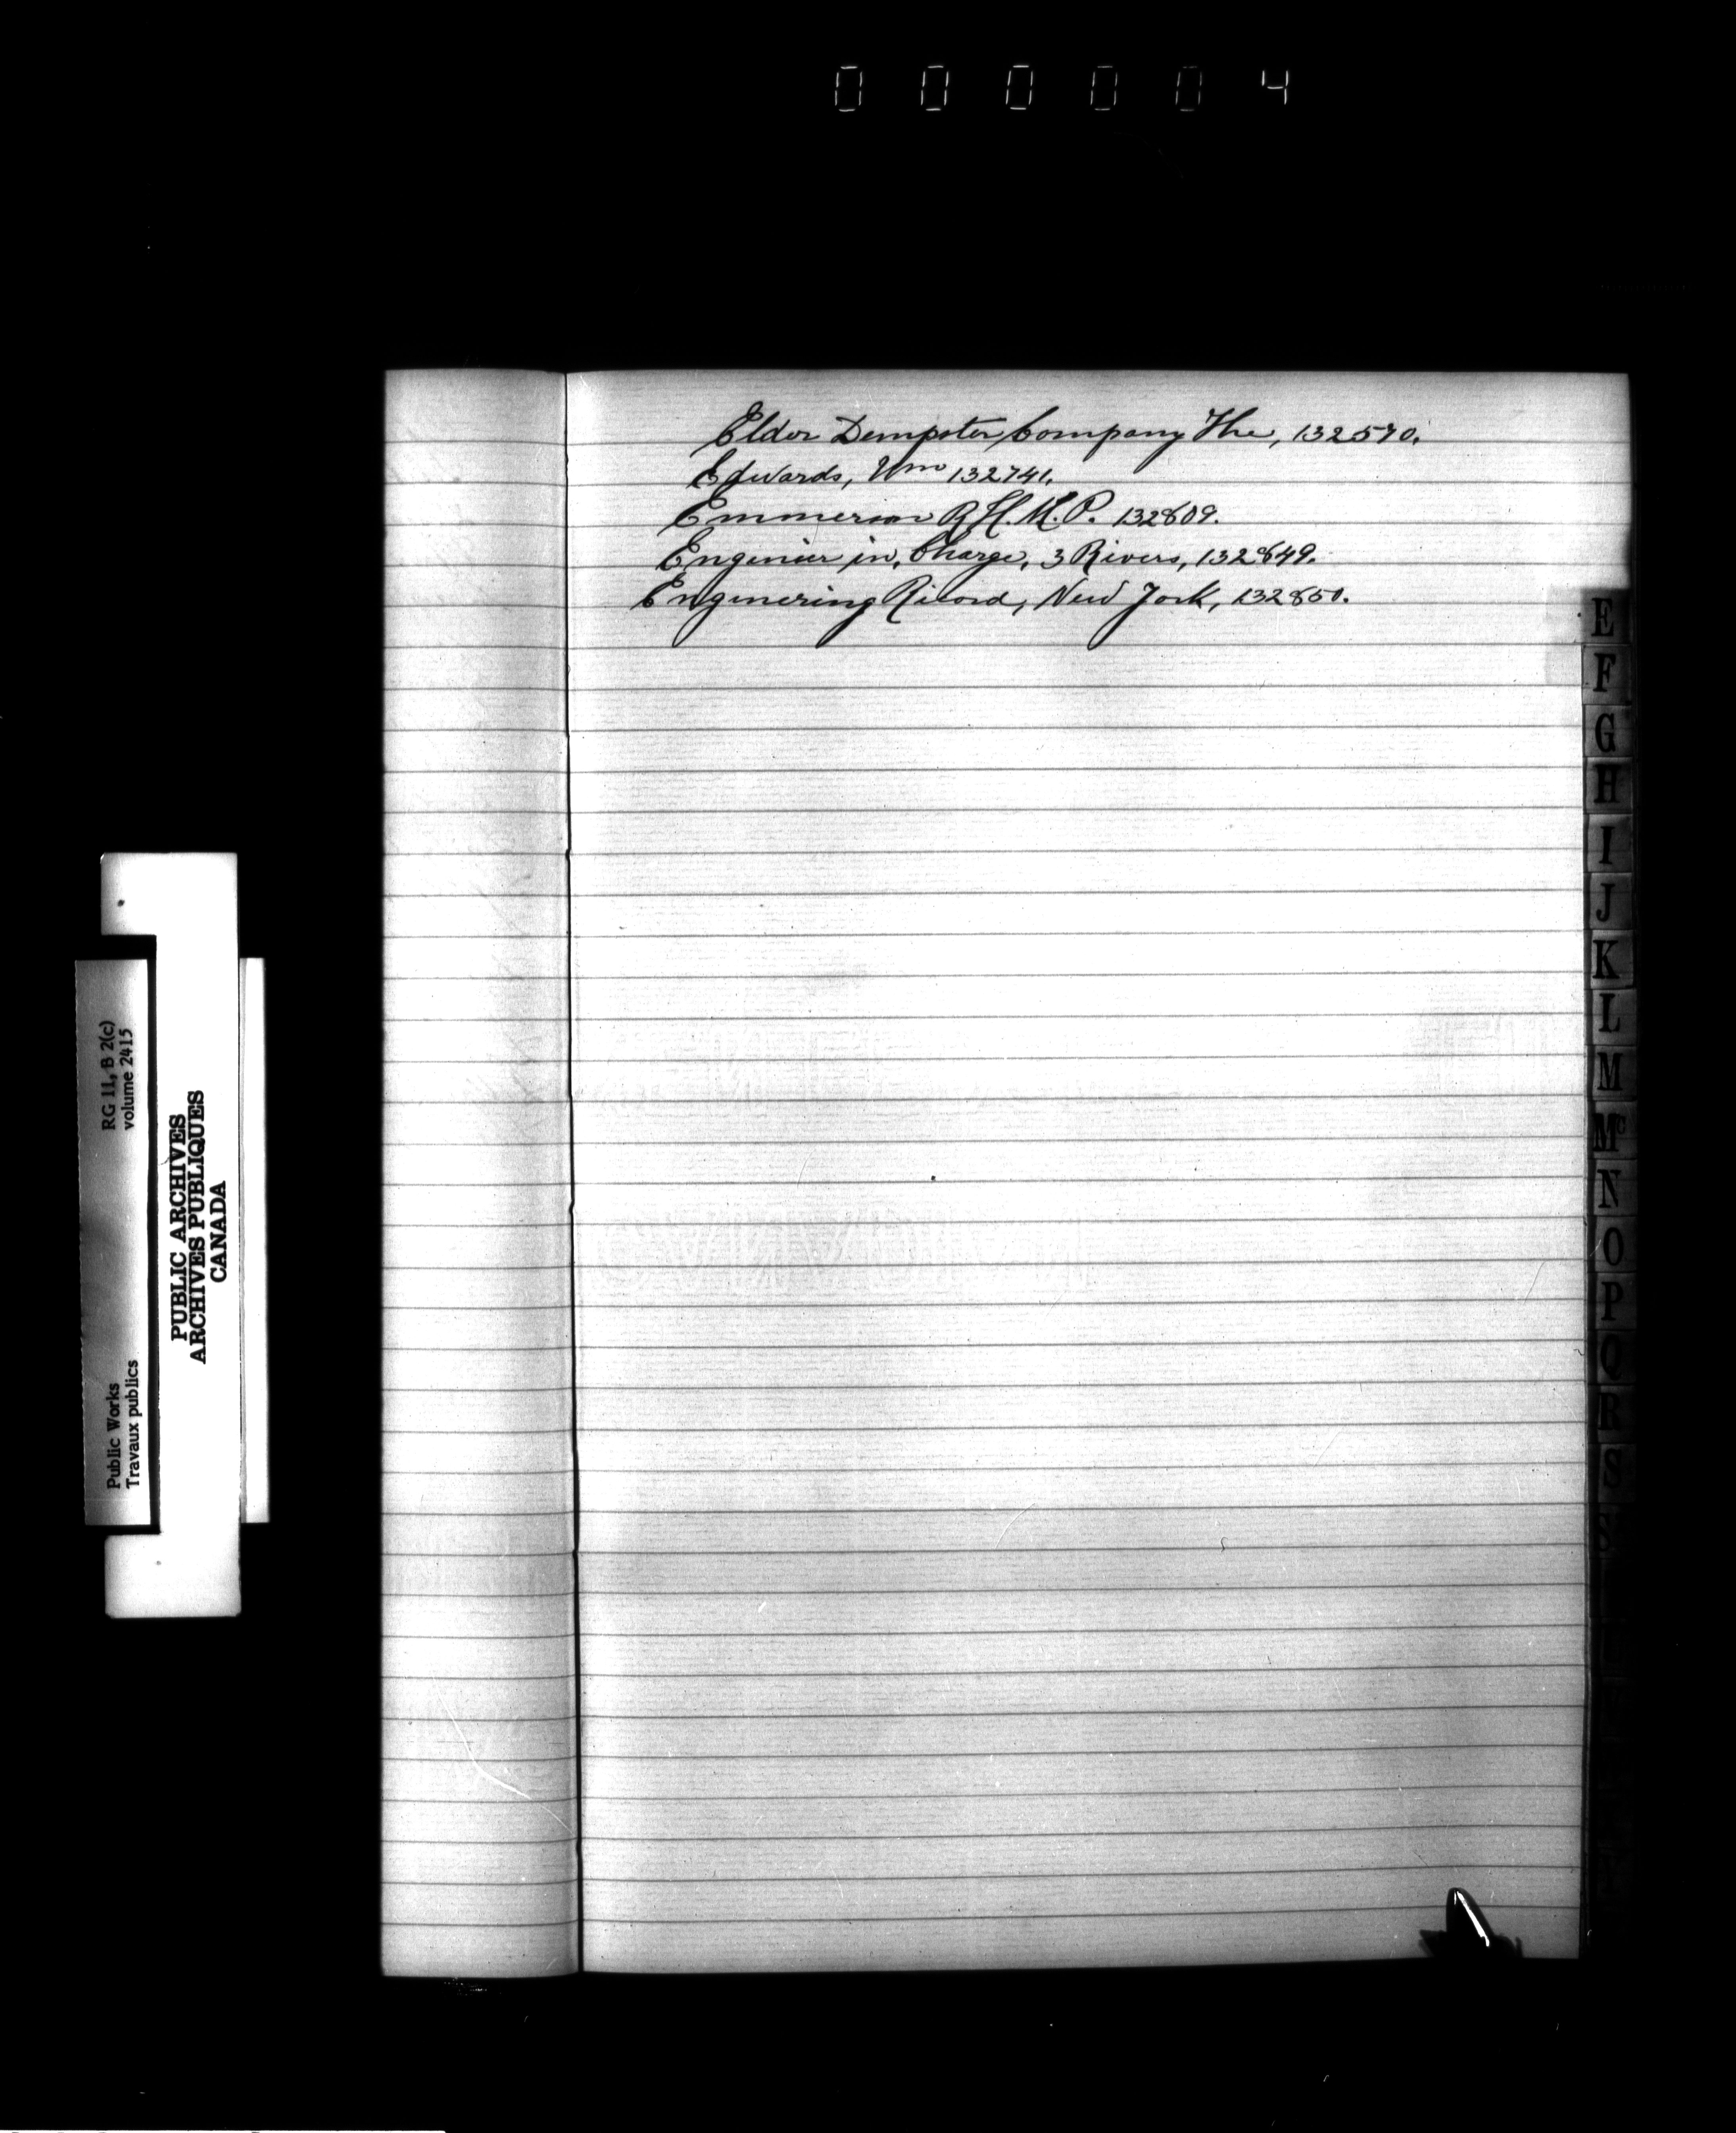 000004
Elder Dempster Company The, 132570.
Edwards, Wm 132741.
Emmerson R.H. M.P. 132809.
Engineer in Charge, 3 Rivers, 132849.
Engineering Record, New York, 132850.
E
F
G
H
I
J
K
L
M
Mc
N
O
P
Q
R
S
RG 11, B 2(c)
volume 2415
Public Works
Travaux publics
PUBLIC ARCHIVES
ARCHIVES PUBLIQUES
CANADA